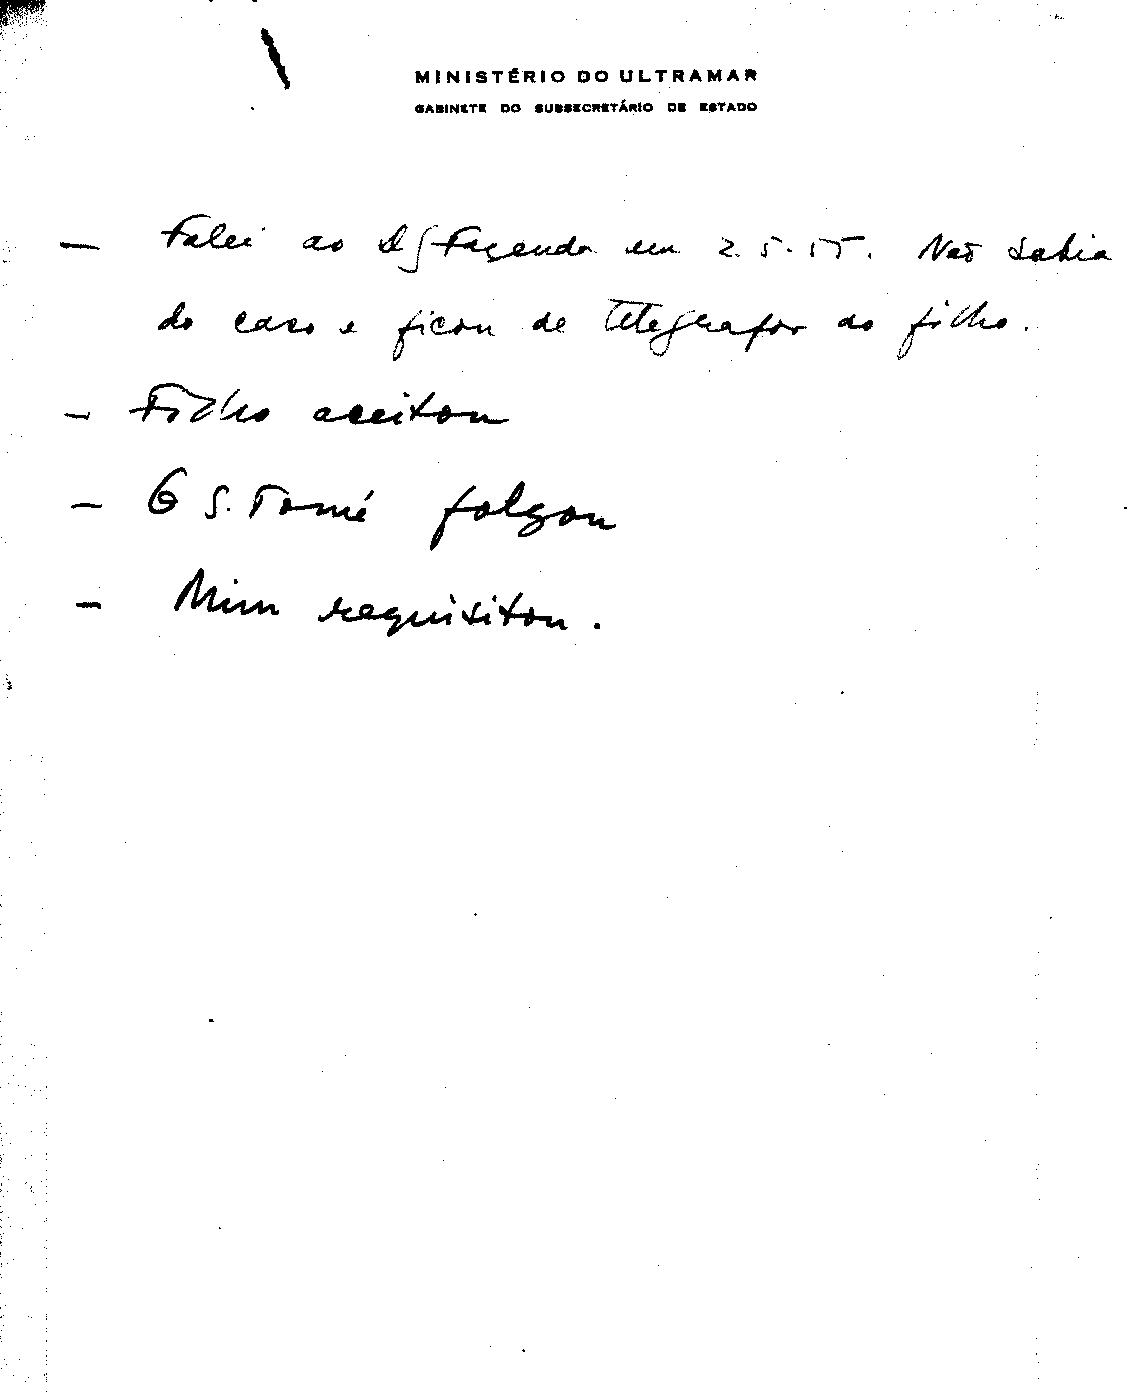 MINISTÉRIO DO ULTRAMAR
GABINETE DO SUBSECRETÁRIO DE ESTADO
— Falei ao D G Fazenda em 2.5.55. Não sabia
do caso e ficou de telegrafar ao filho.
— Filho aceitou
— G S. Tomé folgou
— Mim requisitou.